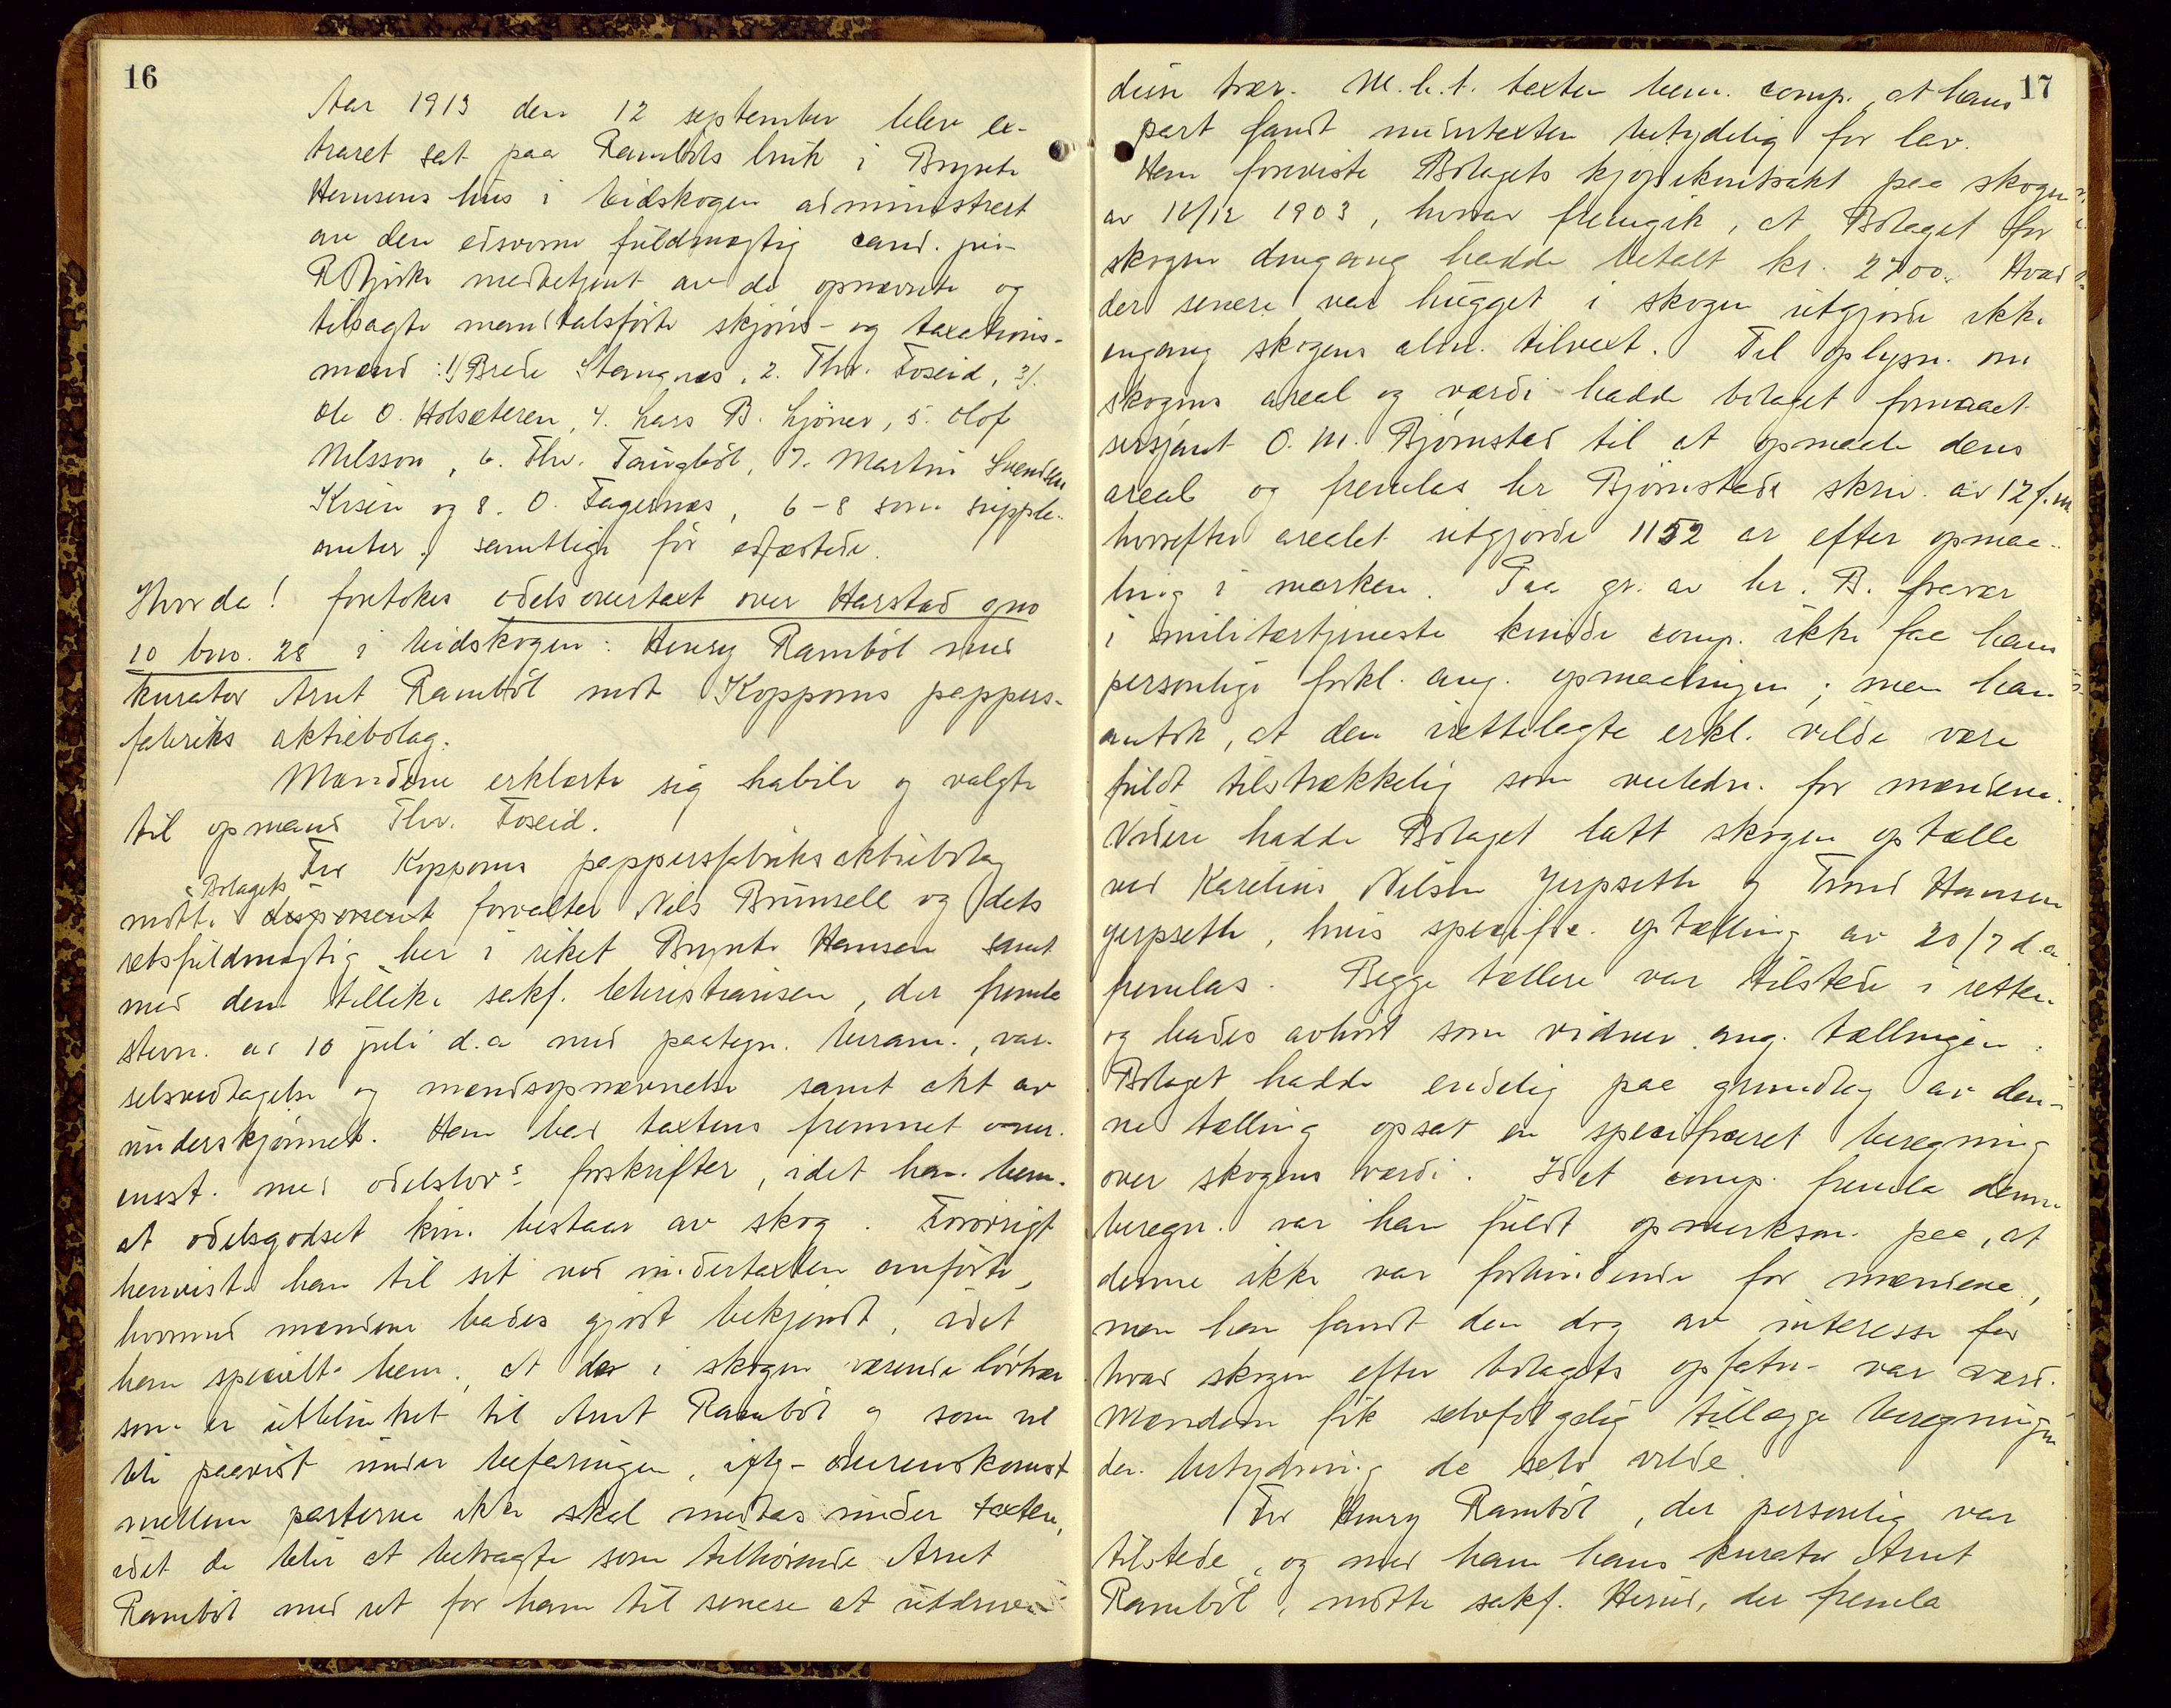 16
Aar 1913 den 12 september blev ex-
traret sat paa Rambøls bruk i Brynte
Hansens hus i Eidskogen administrert
av den edsvorne fuldmægtig cand. jur.
R Bjirke medbetjent av de opnævnte og
tilsagte mandtalsførte skjøns- og taxations-
mænd: 1) Brede Stangnæs, 2. Thv. Foseid, 3/.
Ole O. Holsæteren, 4. Lars B. Ljøner, 5. Olof
Nilsson, 6. Thv. Taugbøl, 7. Martin Svendsen
Krisen og 8. O. Fagernæs, 6-8 som supple-
anter; samtlige før edfæstede.
Hvorda! foretokes odelsovertaxt over Harstad gno
10 bno. 28 i Eidskogen: Henry Rambøl med
kurator Arnt Rambøl mot Koppoms pappers-
fabriks aktiebolag.
Mændene erklærte sig habile og valgte
til opmand Thv. Foseid.
For Koppoms pappersfabriks aktiebolag
møtte Bolagets disponent forvalter Nels Brunsell og dets
retsfuldmægtig her i riket Brynte Hansen samt
med dem tillike sakf. Christiansen, der fremla
stevn. av 10 juli d.a med paategn. beram., var-
selsvedtagelse og mændsopnævnelse samt akt av
underskjønnet. Han bad taxtens fremmet over-
ensst. med odelslovs forskrifter, idet han bem.
at odelsgodset kun bestaar av skog. Forøvrigt
henviste han til sit ved undertaxten anførte,
hvormed mændene bades gjort bekjendt, idet
han specielt bem., at der i skogen værende løvtrær
som er utblinket til Arnt Rambøl og som vil
bli paavist under befaringen, iflg. overenskomst
mellem parterne ikke skal medtas under taxten,
idet de blir at betragte som tilhørende Arnt
Rambøl med ret for ham til senere at utdrive
17
disse trær. M.h.t. taxten bem. comp., at hans
part fandt undertaxten betydelig for lav.
Han foreviste Bolagets kjøpekontrakt paa skogen
av 12/12 1903, hvorav fremgik, at Bolaget for
skogen dengang hadde betalt kr. 2700. Hvad
der senere var hugget i skogen utgjorde ikke
engang skogens alm. tilvext. Til oplysn. om
skogens areal og værdi hadde bolaget formaaet
sersjant O. M. Bjørnstad til at opmaale dens
areal og fremlas hr Bjørnstads skriv. av 12 f.m.
hvorefter arealet utgjorde 1152 ar efter opmaa-
ling i marken. Paa gr. av hr. B. fravær
i militærtjeneste kunde comp. ikke faa hans
personlige forkl. ang. opmaalingen; men han
antok, at den irettelagte erkl. vilde være
fuldt tilstrækkelig som veiledn. for mændene.
Videre hadde Bolaget latt skogen optælle
ved Karelius Nilsen Jerpseth og Trond Hansen
Jerpseth, hvis specific. optælling av 20/7 d.a
fremlas. Begge tællere var tilstede i retten
og bades avhørt som vidner ang. tællingen.
Bolaget hadde endelig paa grundlag av den-
ne tælling opsat en specificeret beregning
over skogens værdi. Idet comp. fremla denne
beregn. var han fuldt opmerksom paa, at
denne ikke var forbindende for mændene,
men han fandt den dog av interesse for
hvad skogen efter bolagets opfatn. var værd.
Mændene fik selvfølgelig tillægge beregningen
den betydning de selv vilde.
For Henry Rambøl, der personlig var
tilstede, og med ham hans kurator Arnt
Rambøl, møtte sakf. Herud, der fremla